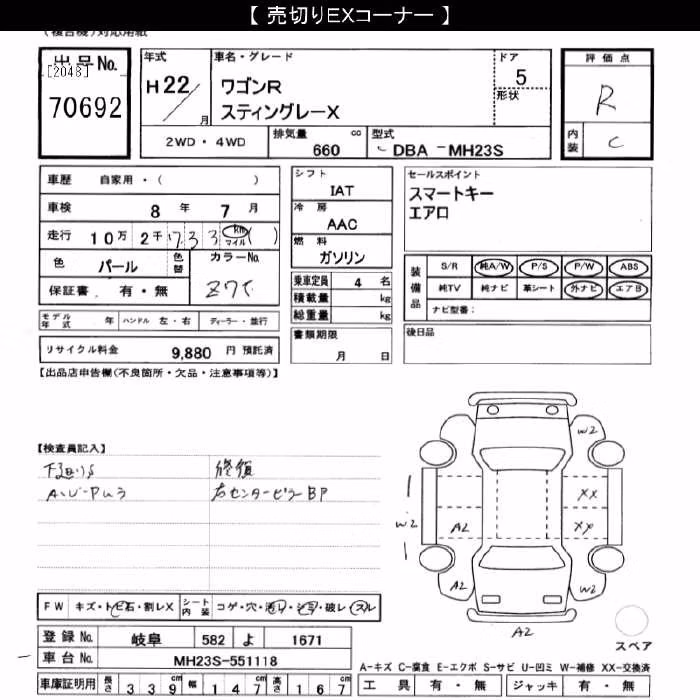 【 売切りEXコーナー 】
(複合機)対応用紙
出品No.
[2048]
70692
年式
H22/
月
車名・グレード
ワゴンR
スティングレーX
ドア
5
形状
評価点
R
内装
C
2WD・4WD
排気量
660
cc
型式
DBA -MH23S
車歴 自家用・( )
車検 8 年 7 月
走行 10万 2千 7 3 3 km マイル ( )
色 パール 色替 カラーNo.
Z7T
保証書 有・無
シフト
IAT
冷房
AAC
燃料
ガソリン
乗車定員 4 名
積載量 kg
総重量 kg
セールスポイント
スマートキー
エアロ
装備品
S/R 純A/W P/S P/W ABS
純TV 純ナビ 革シート 外ナビ エアB
ナビ型番:
モデル年式 年 ハンドル 左・右 ディーラー・並行
リサイクル料金 9,880 円 預託済
書類期限
月 日
後日品
【出品店申告欄(不良箇所・欠品・注意事項等)】
【検査員記入】
下廻りS
A・U・Pムラ
修復
右センターピラーBP
W2
XX
W2
A2
XX
A2
W2
A2
スペア
FW キズ・トビ石・割レX シート内装 コゲ・穴・汚リ・シミ・破レ・スレ
登録No. 岐阜 582 よ 1671
車台No. MH23S-551118
車庫証明用 長さ 339 cm 幅 147 cm 高さ 167 cm
A-キズ C-腐食 E-エクボ S-サビ U-凹ミ W-補修 XX-交換済
工具 有・無 ジャッキ 有・無